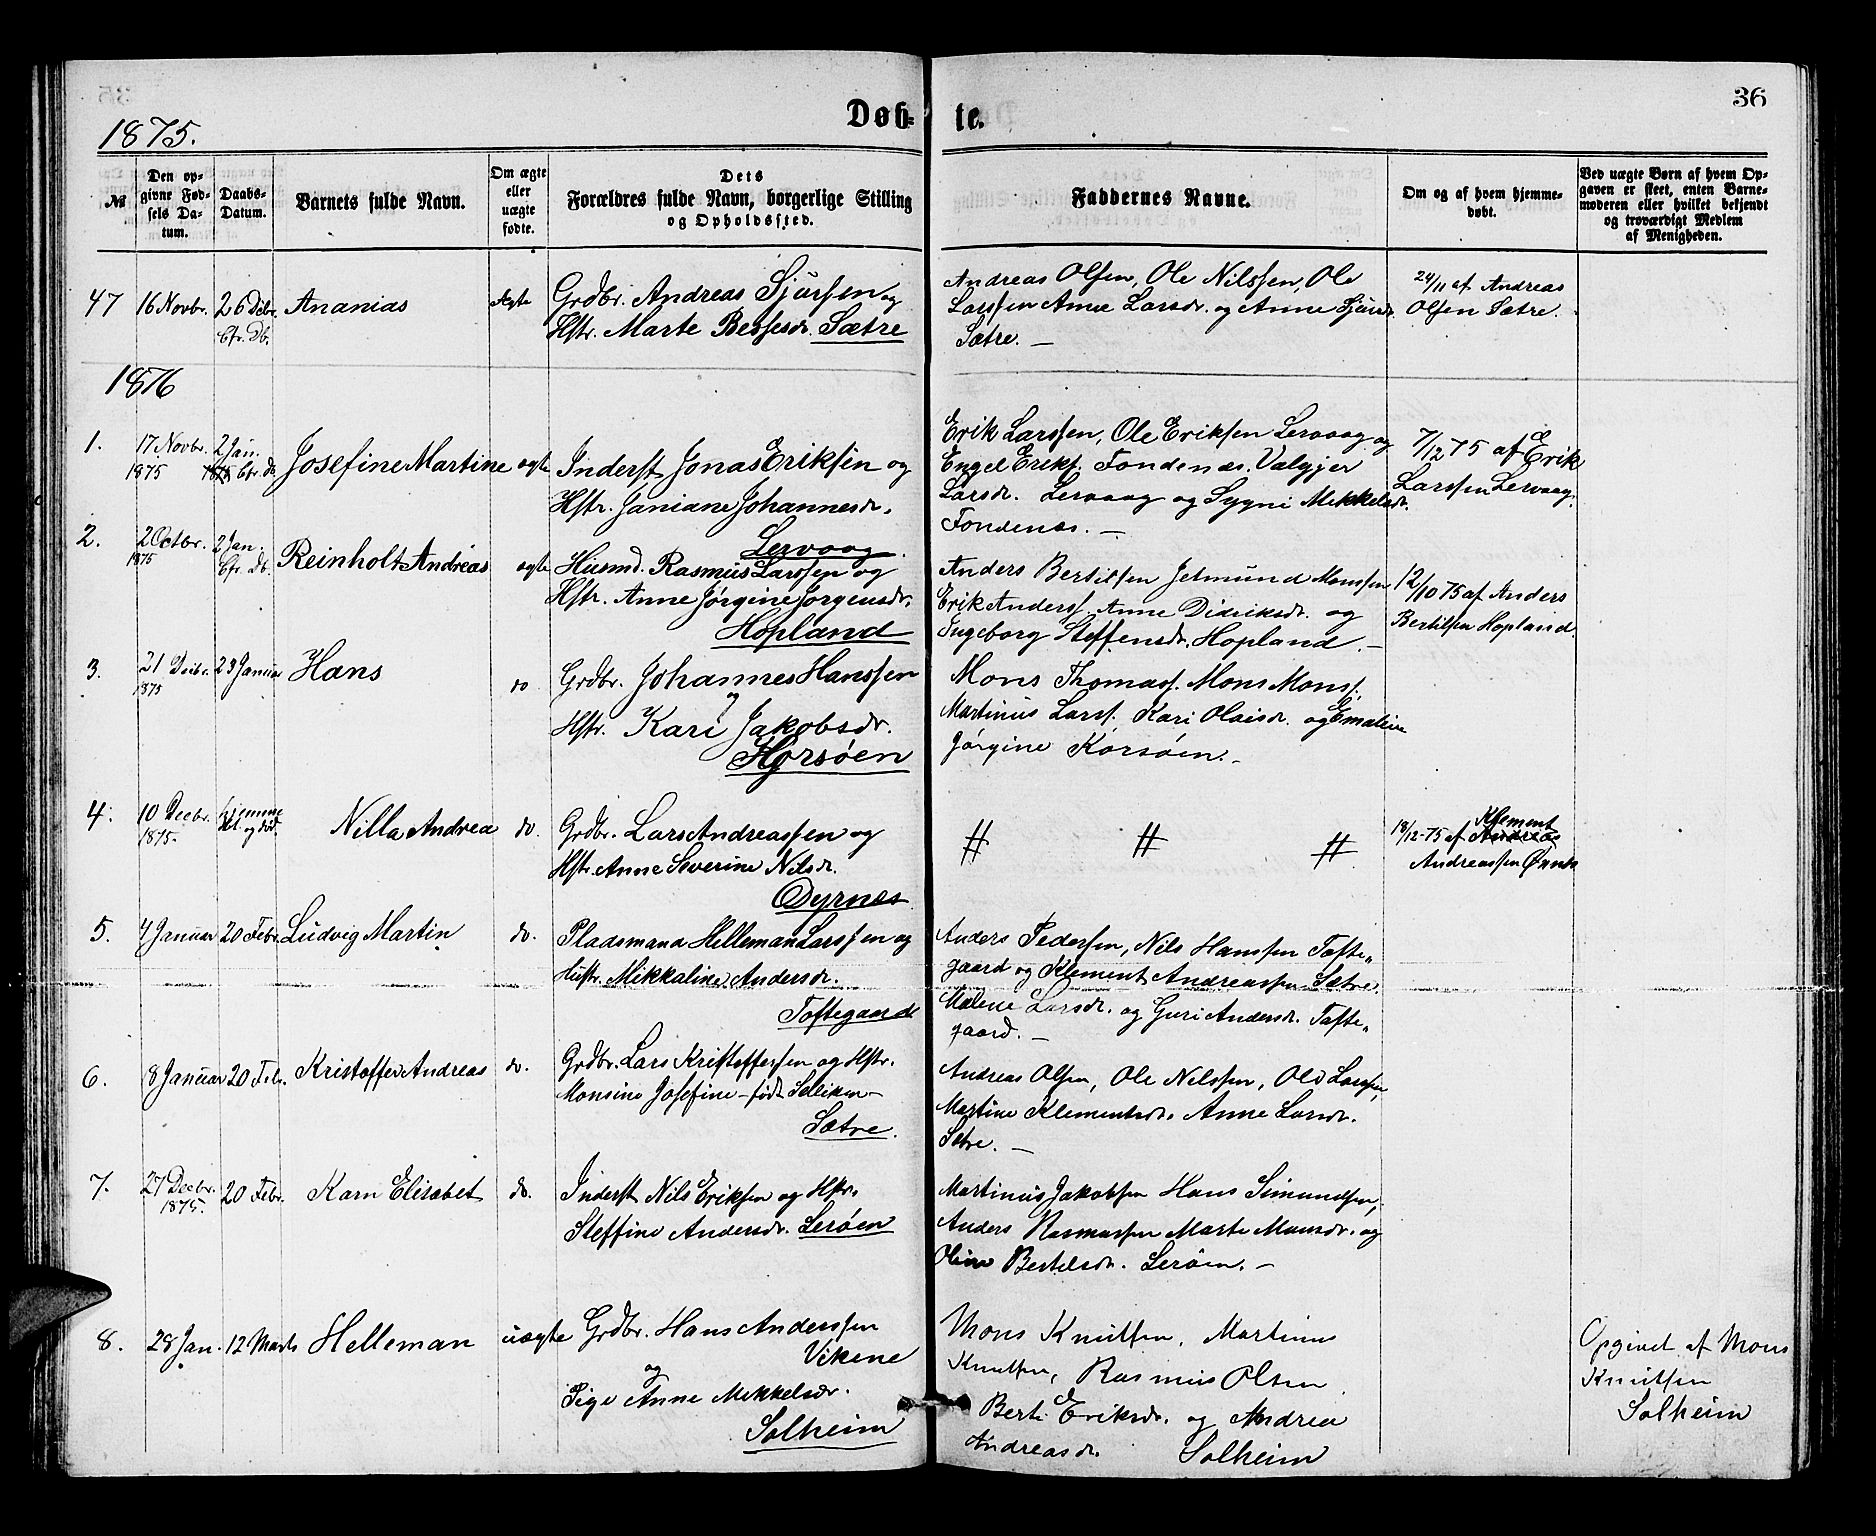 36
Døb- te.
1875.
№
Den op-
givne Fød-
sels Da-
tum.
Daabs-
Datum.
Barnets fulde Navn.
Om ægte
eller
uægte
fødte.
Dets
Forældres fulde Navn, borgerlige Stilling
og Opholdssted.
Faddernes Navne.
Om og af hvem hjemme-
døbt.
Ved uægte Børn af hvem Op-
gaven er skeet, enten Barne-
moderen eller hvilket bekjendt
og troværdigt Medlem
af Menigheden.
47 16 Novbr. 26 Dcbr. Bfr. Db. Ananias ægte
Grdbr. Andreas Sjursen og
Hstr. Marte Bessesdr. Sætre
Andreas Olsen, Ole Nilssen, Ole
Larssen Anne Larsdr. og Anne Sjursdr.
Sætre. —
24/11 af Andreas
Olsen Sætre.
1876
1. 17 Novbr. 1875 2 Jan. Bfr. db Josefine Martine ægte
Inderst Jonas Eriksen og
Hstr. Janiane Johannesdr.
Lervaag.
Erik Larssen, Ole Eriksen Lervaag og
Engel Eriks. Fondenæs. Valgjer
Larsdr. Lervaag og Sygni Mikkelsdr.
Fondenæs. —
7/12 75 af Erik
Larssen Lervaag.
2. 2 Octbr. 1875 2 Jan. Bfr. Db. Reinholt Andreas ægte
Husmd. Rasmus Larssen og
Hstr. Anne Jørgine Jørgensdr.
Hopland
Anders Bertilsen Jetmund Monssen
Erik Anderss. Anne Didriksdr. og
Ingeborg Steffensdr. Hopland. —
12/10 75 af Anders
Bertilsen Hopland.
3. 21 Decbr. 1875 23 Januar Hans do
Grdbr. Johannes Hanssen
og
Hstr. Kari Jakobsdr.
Korsøen
Mons Thomass. Mons Monss.
Martinus Larss. Kari Olaisdr. og Emalie
Jørgine Korsøen. —
4. 10 Decbr. 1875. hjemme dbt. og død. Nilla Andrea do.
Grdbr. Lars Andreassen og
Hstr. Anne Severine Nilsdr.
Dyrnæs
# # #
18/12-75 af Klement
Andreas
Andreassen
5. 4 Januar 20 Febr. Ludvig Martin do.
Pladsmand Helleman Larssen og
Hustr. Mikkaline Andersdr.
Toftegaard
Anders Pedersen, Nils Hanssen Tofte„
gaard og Klement Andreassen Sætre.
Malene Larsdr. og Guri Andersdr. Tofte„
gaard. —
6. 8 Januar 20 Febr. Kristoffer Andreas do.
Grdbr. Lars Kristoffersen og Hstr.
Monsine Josefine – født –
Sætre.
Andreas Olsen, Ole Nilssen, Ole Larssen,
Martine Klementsdr. Anne Larsdr.
Sætre. —
7. 27 Decbr. 1875. 20 Febr. Karn Elisabet do.
Inderst Nils Eriksen og Hstr.
Steffine Andersdr. Lerøen
Martinus Jakobsen Hans Simundsen,
Anders Rasmussen Marte Monsdr. og
Oline Bertelsdr. Lerøen. —
8. 28 Jan. 12 Marts Helleman uægte
Grdbr. Hans Anderssen
Vikene
og
Pige Anne Mikkelsdr.
Solheim
Mons Knutsen, Martinus
Knutsen, Rasmus Olsen
Berte Eriksdr. og Andrea
Andreasdr. Solheim
Opgivet af Mons
Knutsen
Solheim